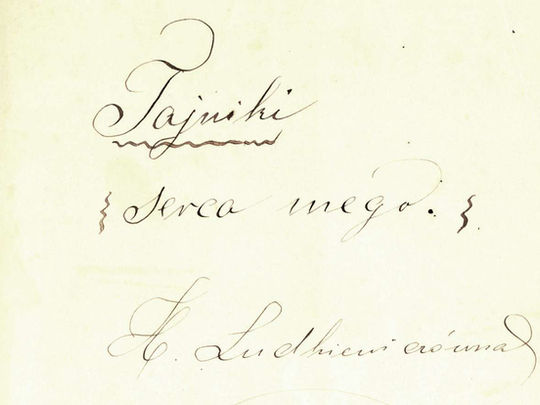 Tajniki
serca mégo.
H. Ludkiewiczówna